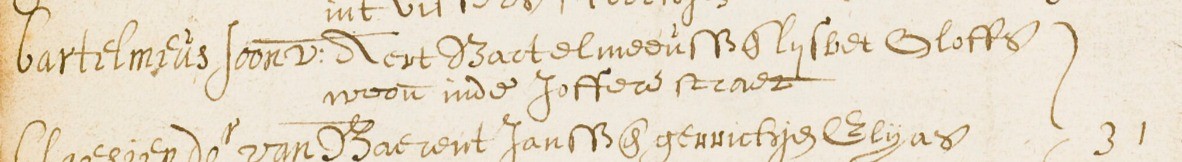 int
bartelmeus soon v: Aert Bartelmeeuss & lijsbet Sloffs
woon inde Joffere straet
Claesien do^r van Baerent Janss & gerrichjen Elyas 31